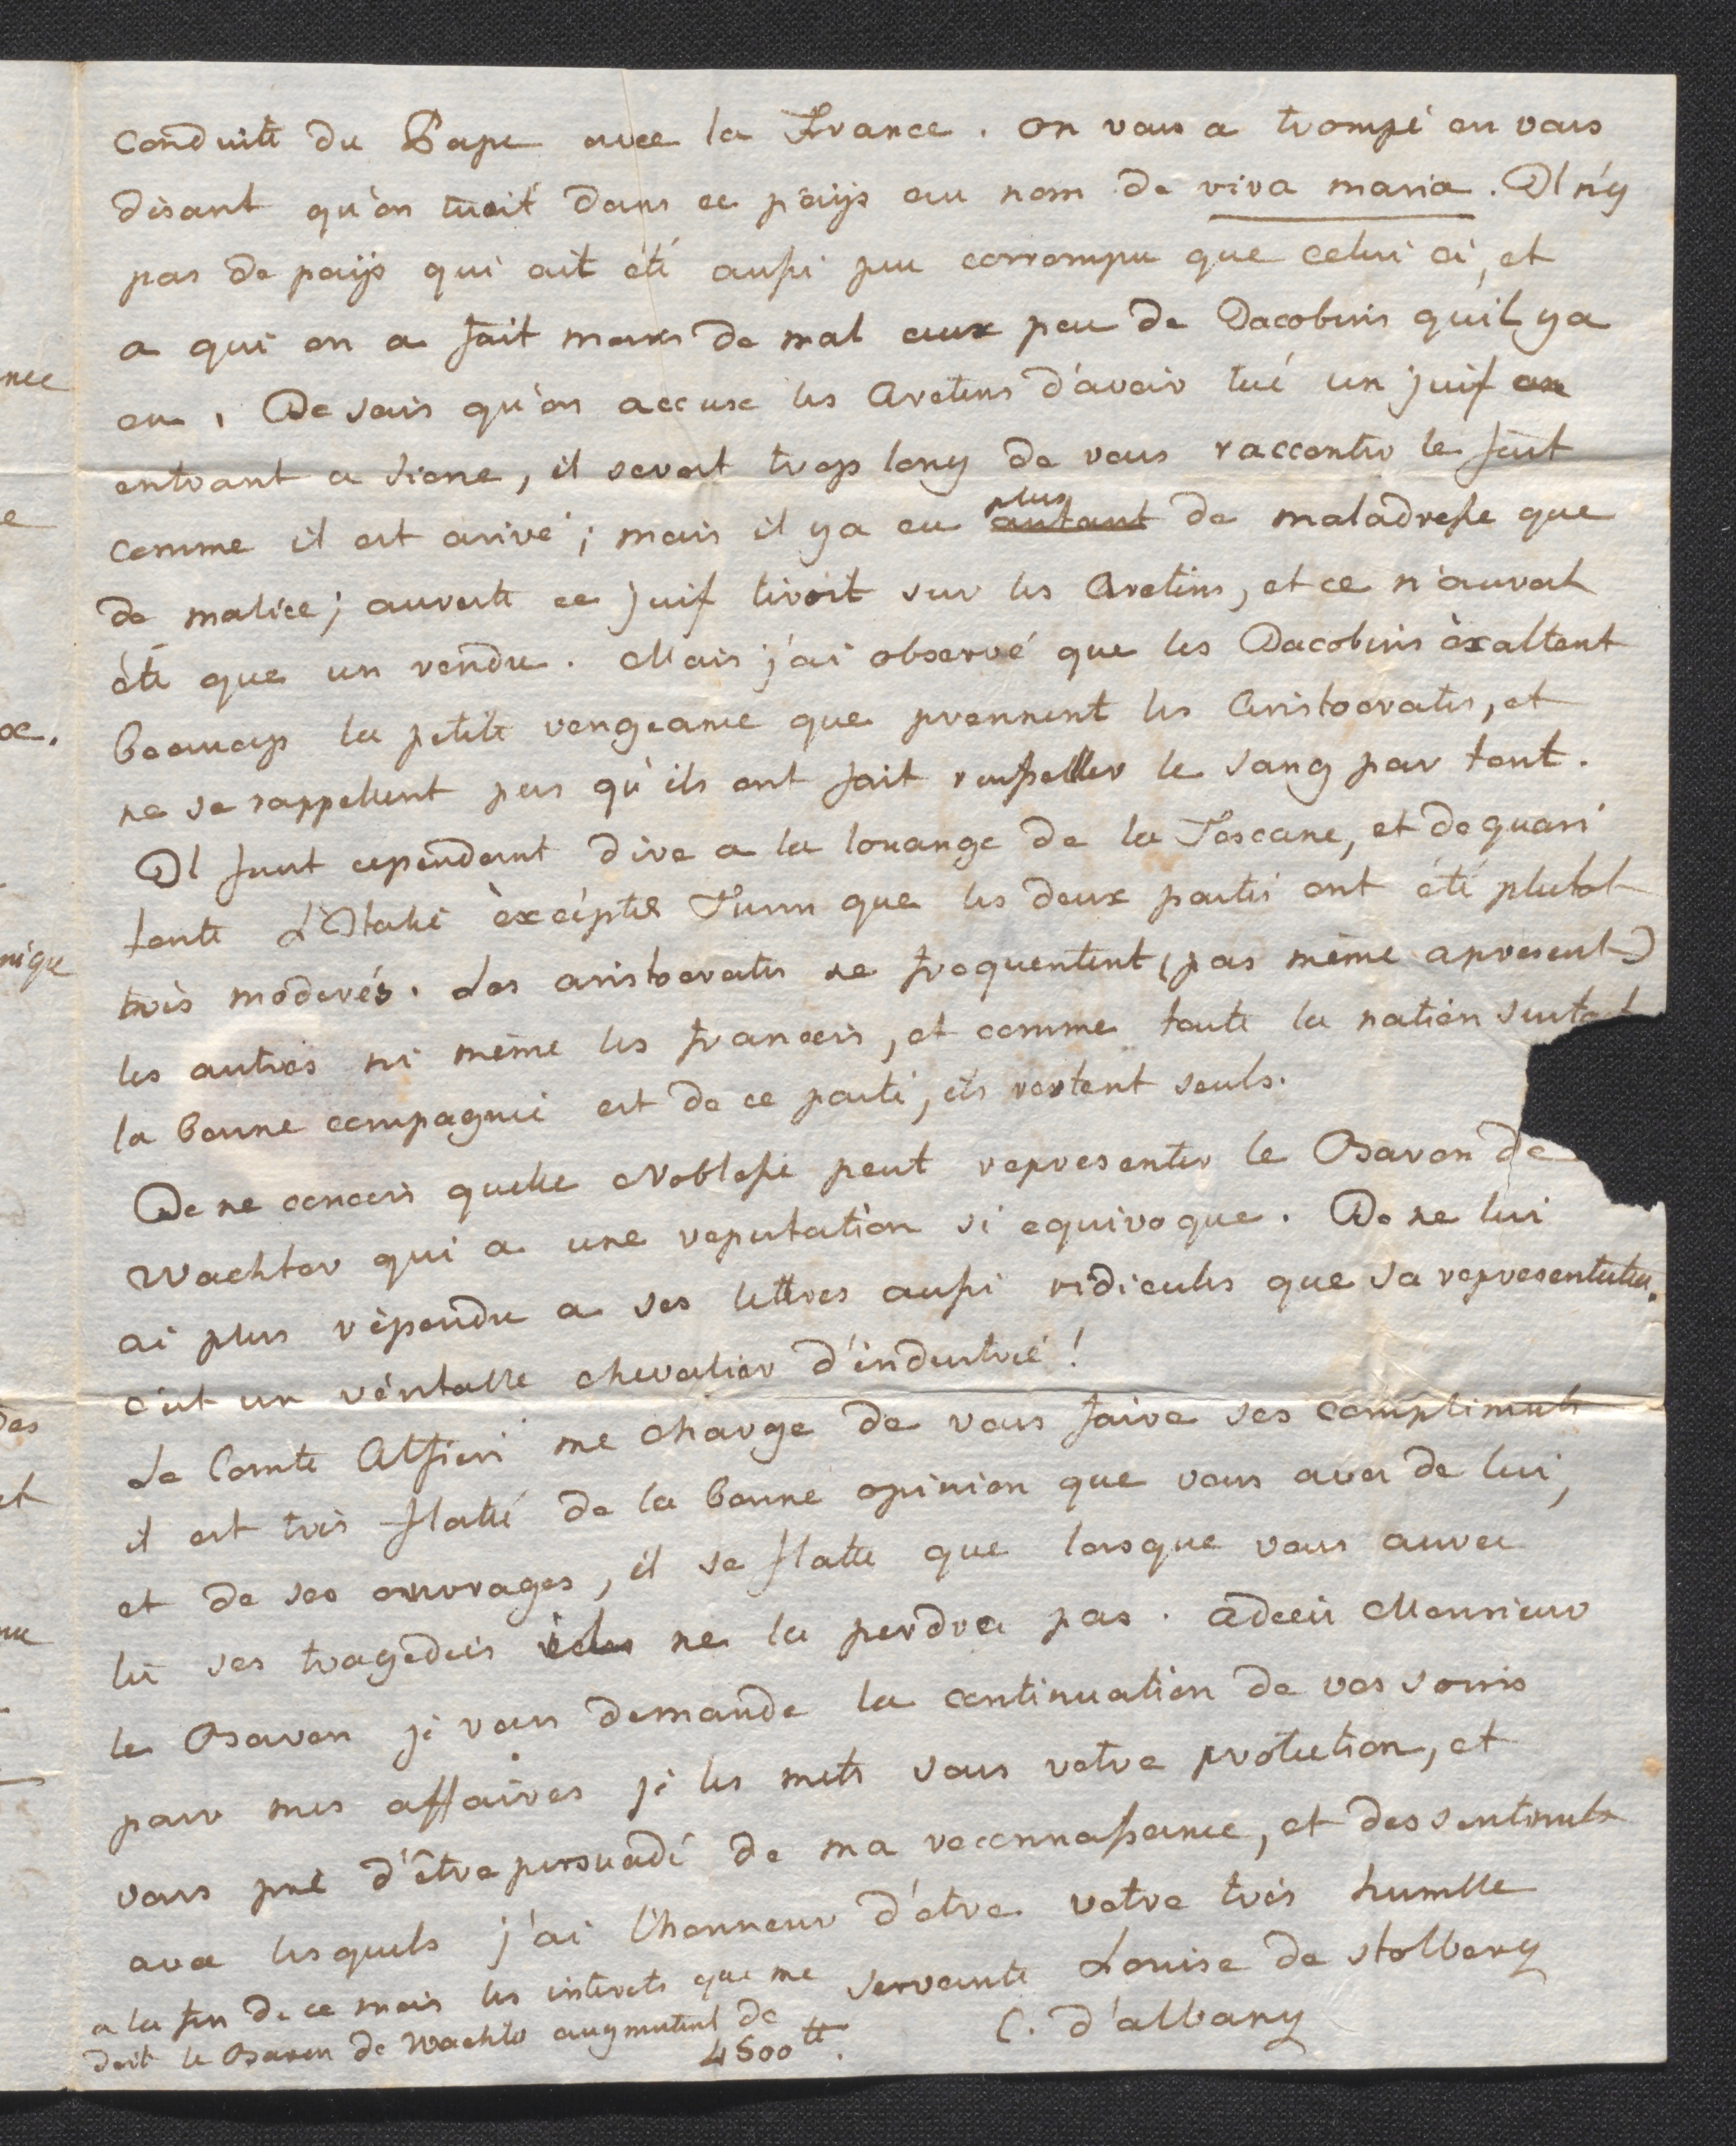 conduite du Pape avec la France. on vous a trompé en vous
disant qu'on tuoit dans ce païjs au nom de viva maria. Il n'y
pas de païjs qui ait été aussi peu corrompu que celui ci, et
a qui on a fait moins de mal aux peu de Jacobins qu'il y a
eu. Je sais qu'on accuse les Aretins d'avoir tué un juif en
entrant a Siene, il seroit trop long de vous racconter le fait
comme il est arivé; mais il y a eu autant plus de maladresse que
de malice; aureste ce juif tiroit sur les Aretins, et ce n'auroit
été que un rendu. Mais j'ai observé que les Jacobins èxaltent
beaucoup la petite vengeance que prennent les Aristocrates, et
ne se rappellent pas qu'ils ont fait ruisseller le sang par tout.
Il faut cependant dire a la louange de la Toscane, et de quasi
toute L'Italie èxcéptés Turin que les deux partis ont été plutot
très moderés. Les aristocrates ne frequentent (pas même apresent)
les autres ni même les francois, et comme toute la nation surtout
la bonne compagnie est de ce parti, ils restent seuls.
Je ne concois quelle Noblesse peut representer le Baron de
Wachter qui a une reputation si equivoque. Je ne lui
ai plus répondu a ses lettres aussi ridicules que sa representation.
c'est un véritable chevalier d'industrie!
Le Comte Alfieri me charge de vous faire ses complimens
il est très flatté de la bonne opinion que vous avez de lui,
et de ses ouvrages, il se flatte que lorsque vous aurez
lu ses tragedies ne la perdra pas. adieu Monsieur
le Baron je vous demande la continuation de vos soins
pour mes affaires je les mets sous votre protection, et
vous prie d'être persuadé de ma reconnassance, et des sentiments
avec lesquels j'ai l'honneur d'etre votre très humble
servante Louise de Stolberg
C. d'albany
a la fin de ce mois les interets que me
doit le Baron de Wachter augmentent de
4500 ₶.